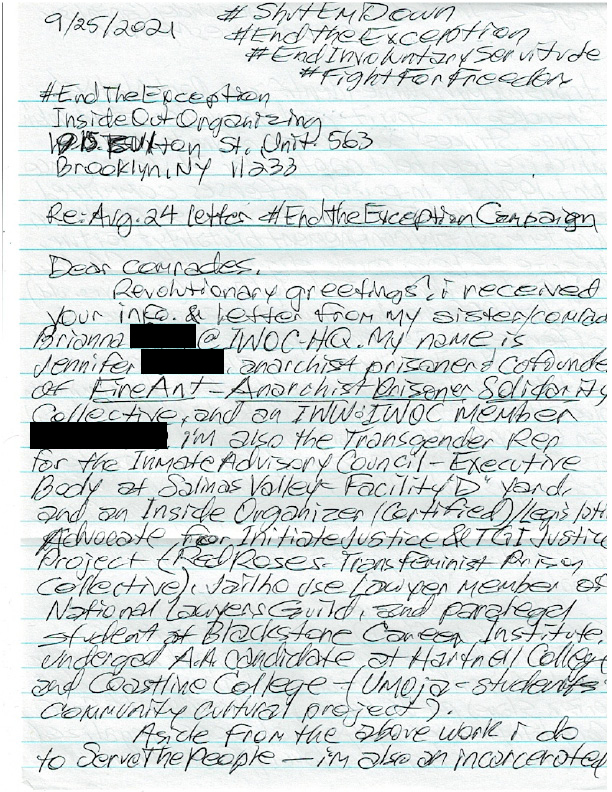 9/25/2021
#ShutEmDown
#EndTheException
#EndInvoluntaryServitude
#FightForFreedom
#EndTheException
InsideOutOrganizing
St. Unit. 563
Brooklyn, NY 11233
Re: Aug. 24 letter #EndTheException Campaign
Dear comrades,
Revolutionary greetings, i received
your info. & letter from my sister/comrad
Brianna @ IWOC-HQ. My name is
Jennifer , anarchist prisoner & cofounde
of FireAnt-Anarchist Prisoner Solidarity
Collective, and an IWW:IWOC member
i'm also the Transgender Rep
for the Inmate Advisory Council-Executive
Body at Salinas Valley-Facility "D" yard,
and an Inside Organizer (Certified)/legislati
Advocate for Initiate Justice & TGI Justice
Project (RedRoses-Transfeminist Prison
Collective), Jailhouse Lawyer member of
National Lawyers Guild, and paralegal
student at Blackstone Career Institute,
undergad A.A. candidate at Hartnell College
and Coastline College - (Umoja-students
community cultural project).
Aside from the above work i do
to ServeThePeople — i'm also an incarcerated